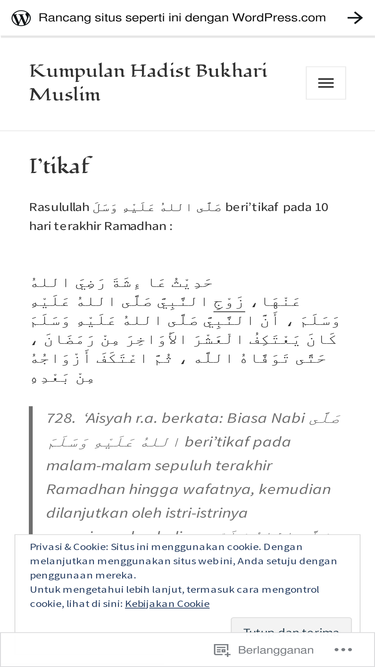 Rancang situs seperti ini dengan WordPress.com
Kumpulan Hadist Bukhari
Muslim
I'tikaf
Rasulullah صَلَّى اللهُ عَلَيْهِ وَسَلَ beri'tikaf pada 10
hari terakhir Ramadhan :
حَدِيْثُ عَا ءِشَةَ رَضِيَ اللهُ
عَنْهَا، زَوْجِ النَّبِيَّ صَلَّى اللهُ عَلَيْهِ
وَسَلَمَ ، أَنَّ النَّبِيَّ صَلَّى اللهُ عَلَيْهِ وَسَلَّمَ
كَانَ يَعْتَكِفُ الْعَشْرَ الأَوَاخِرَ مِنْ رَمَضَانَ ،
حَتَّى تَوَفَّاهُ اللَّه ، ثُمَّ اعْتَكَفَ أَزْوَاجُهُ
مِنْ بَعْدِهِ
728. 'Aisyah r.a. berkata: Biasa Nabi صَلَّى
اللهُ عَلَيْهِ وَسَلَمَ beri'tikaf pada
malam-malam sepuluh terakhir
Ramadhan hingga wafatnya, kemudian
dilanjutkan oleh istri-istrinya
Privasi & Cookie: Situs ini menggunakan cookie. Dengan
melanjutkan menggunakan situs web ini, Anda setuju dengan
penggunaan mereka.
Untuk mengetahui lebih lanjut, termasuk cara mengontrol
cookie, lihat di sini: Kebijakan Cookie
Tutup dan terima
Berlangganan